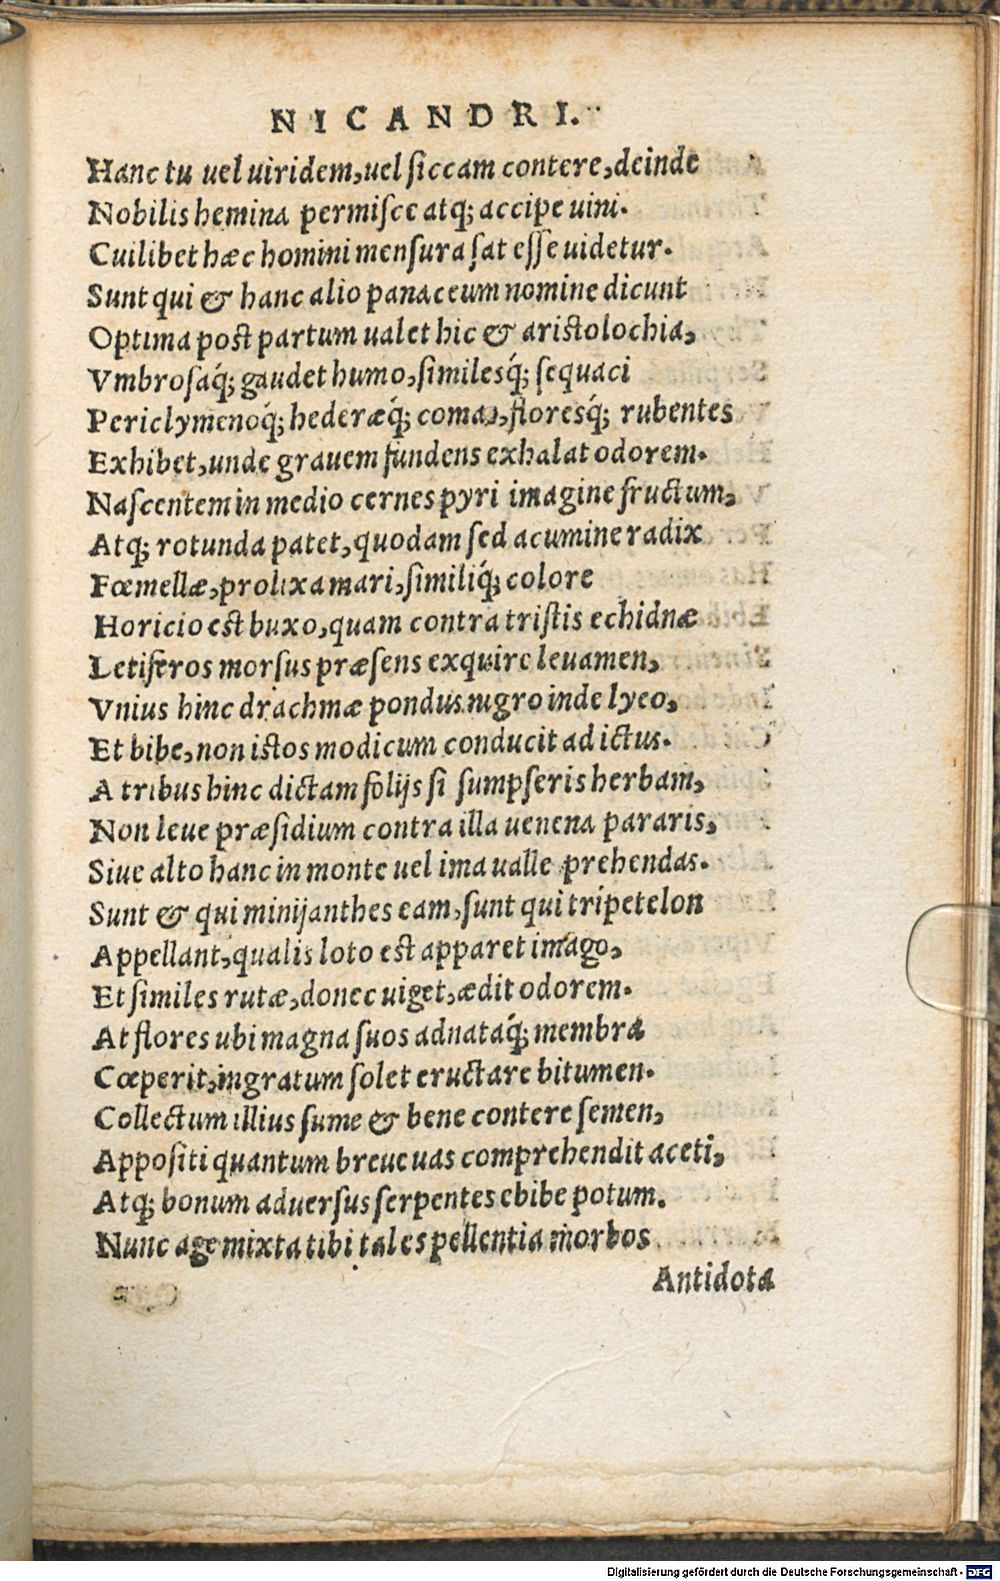 NICANDRI.
Hanc tu uel uiridem, uel ſiccam contere, deinde
Nobilis hemina permiſce atq; accipe uini.
Cuilibet hæc homini menſura ſat eſſe uidetur.
Sunt qui & hanc alio panaceum nomine dicunt
Optima poſt partum ualet hic & ariſtolochia,
Vmbroſaq́; gaudet humo, ſimilesq́; ſequaci
Periclymenoq́; hederæq́; comas, floresq́; rubentes
Exhibet, unde grauem fundens exhalat odorem.
Naſcentem in medio cernes pyri imagine fructum,
Atq; rotunda patet, quodam ſed acumine radix
Fœmellæ, prolixa mari, ſimiliq́; colore
Horicio eſt buxo, quam contra triſtis echidnæ
Letiferos morſus præſens exquire leuamen,
Vnius hinc drachmæ pondus nigro inde lyeo,
Et bibe, non iſtos modicum conducit ad ictus.
A tribus hinc dictam folijs ſi ſumpſeris herbam,
Non leue præſidium contra illa uenena pararis,
Siue alto hanc in monte uel ima ualle prehendas.
Sunt & qui minijanthes eam, ſunt qui trípetelon
Appellant, qualis loto eſt apparet imago,
Et ſimiles rutæ, donec uiget, ædit odorem.
At flores ubi magna ſuos adnataq́; membra
Cœperit, ingratum ſolet eructare bitumen.
Collectum illius ſume & bene contere ſemen,
Appoſiti quantum breue uas comprehendit aceti,
Atq; bonum aduerſus ſerpentes ebibe potum.
Nunc age mixta tibi tales pellentia morbos
Antidota
Digitalisierung gefördert durch die Deutsche Forschungsgemeinschaft - DFG